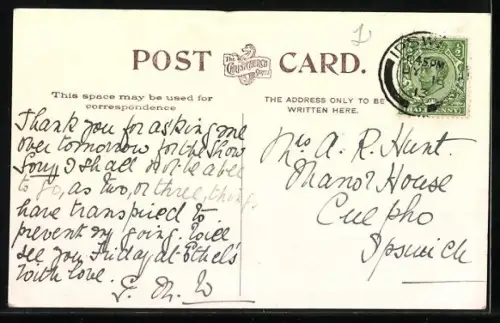 POST CARD.
The
CHRISTCHURCH
This space may be used for
correspondence
THE ADDRESS ONLY TO BE
WRITTEN HERE.
1
IPSWI
45PM
12
Thank you for asking me
over tomorrow for the Show
Sorry I shall not be able
to go, as two, or three, things
have transpired to
prevent my going. Will
see you Friday at Ethel's
With love.
E. M. W
Mrs A. R. Hunt.
Manor House
Culpho
Ipswich